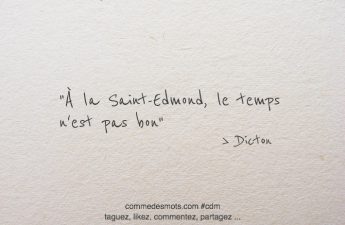 "À la Saint-Edmond, le temps
n'est pas bon"
> Dicton
commedesmots.com #cdm
taguez, likez, commentez, partagez ...